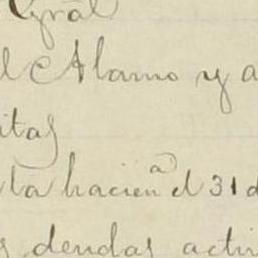 Gral
l Alamo y a
itas
ta hacien^a d 31 d
s deudas activ